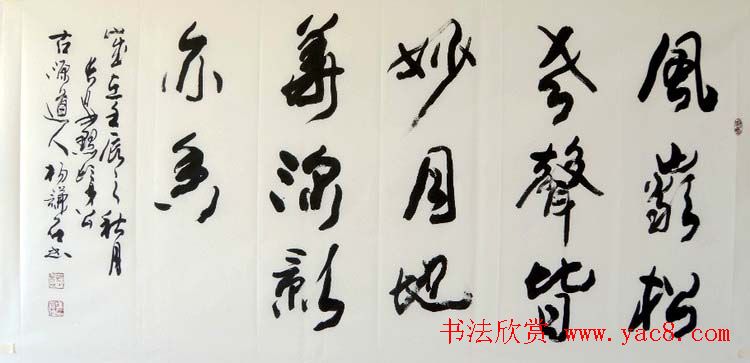 風巖松
老聲皆
妙月地
華深影
亦香
歲在壬辰之秋月
古源道人楊謙書
书法欣赏 www.yac8.com